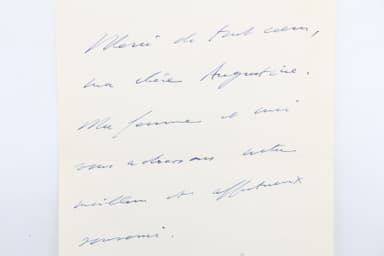 Merci de tout cœur,
ma chère Augustine.
Ma femme et moi
vous adressons notre
meilleur et affectueux
souvenir.